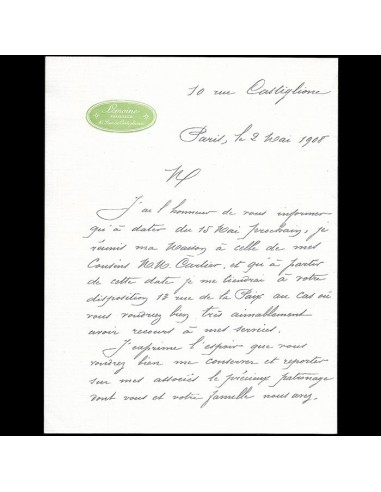 10 rue Castiglione
Paris, le 2 Mai 1908
M
J'ai l'honneur de vous informer
qu'à dater du 15 Mai prochain, je
réunis ma Maison à celle de mes
Cousins M.M. Cartier, et qu'à partir
de cette date je me tiendrai à votre
disposition 13 rue de la Paix au cas où
vous voudrez bien très aimablement
avoir recours à mes services.
J'exprime l'espoir que vous
voudrez bien me conserver et reporter
sur mes associés le précieux patronage
dont vous et votre famille nous avez.